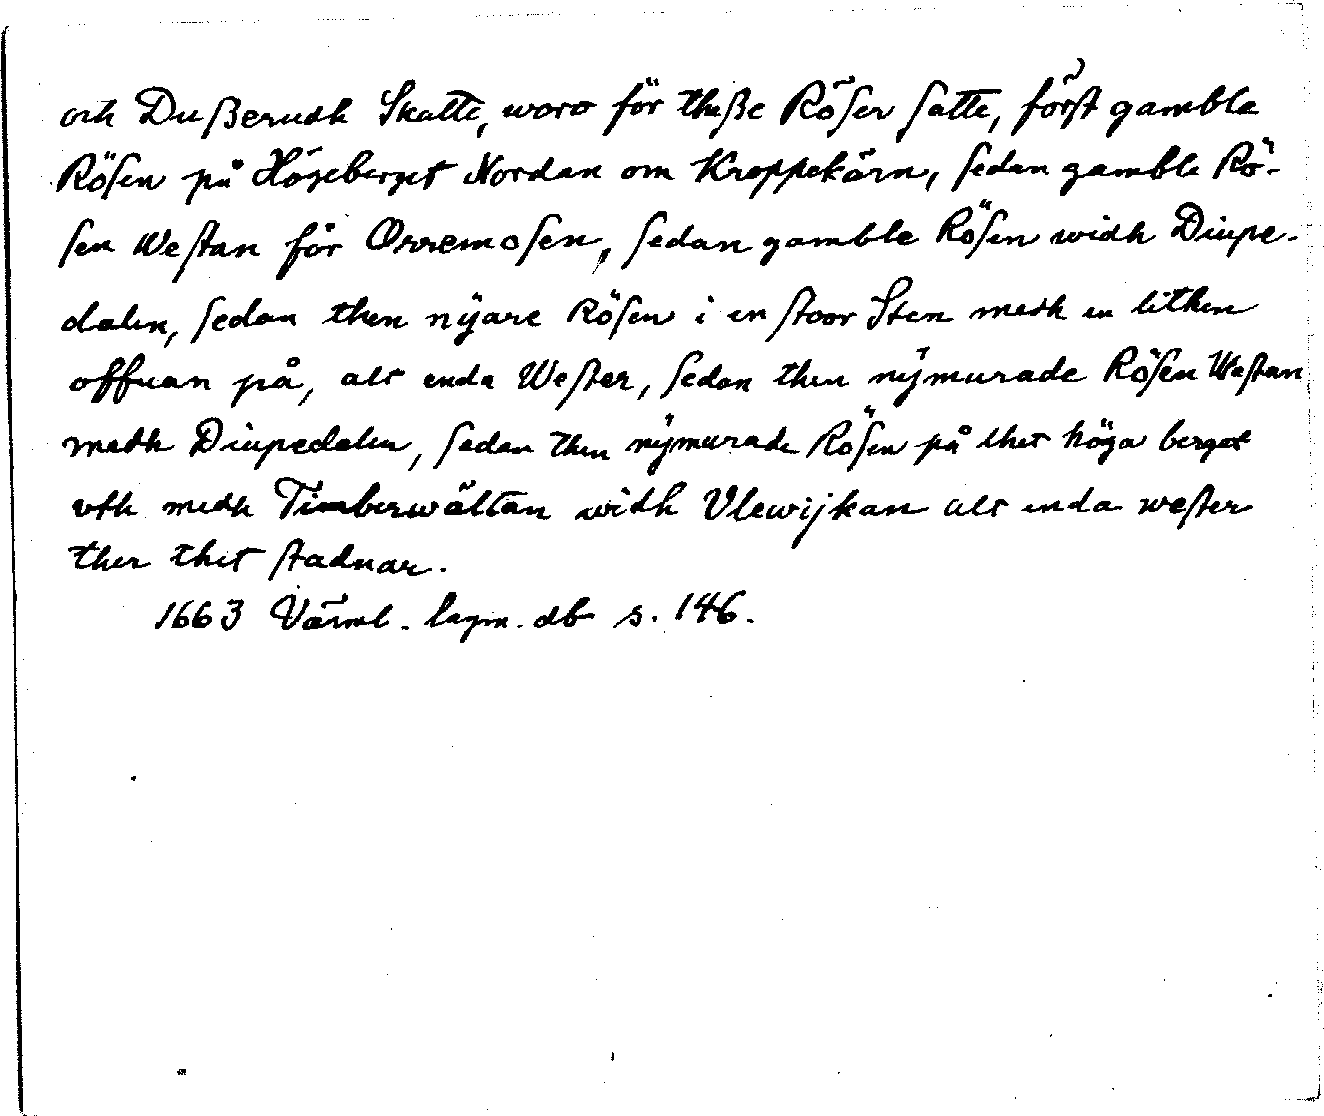 och Dußerudh Skatte, woro för theße Röser satte, först gamble
Rösen på Högeberget Nordan om Kroppekärn, sedan gamble Rö-
sen Westan för Orremosen, sedan gamble Rösen widh Diupe-
dalen, sedan then nÿare Rösen i en stoor Sten medh en lithen
offuan på, alt enda Wester, sedan then nÿmurade Rösen Westan
medh Diupedalen, sedan then nÿmurade Rösen på thet höga berget
vth medh Timberwältan widh Vlewijkan alt enda wester
ther thet stadnar.
1663 Värml. lagm. db s. 146.